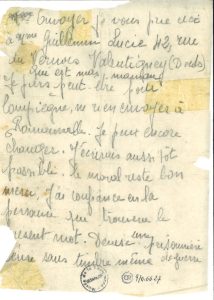 Envoyer je vous prie ceci
à Mme Guillemin Lucie 42, rue
du Vernois Valentigney (Doubs)
que est mas maman
Je pars peut être pour
Compiègne, ne rien envoyer à
Romainville. Je peux encore
changer. J'écrirais aussi tôt
possible. Le moral reste bon
merci, j'ai confiance en la
personne qui trouvera le
présent mot. Denise une prisonnière
sans timbre même de guerre